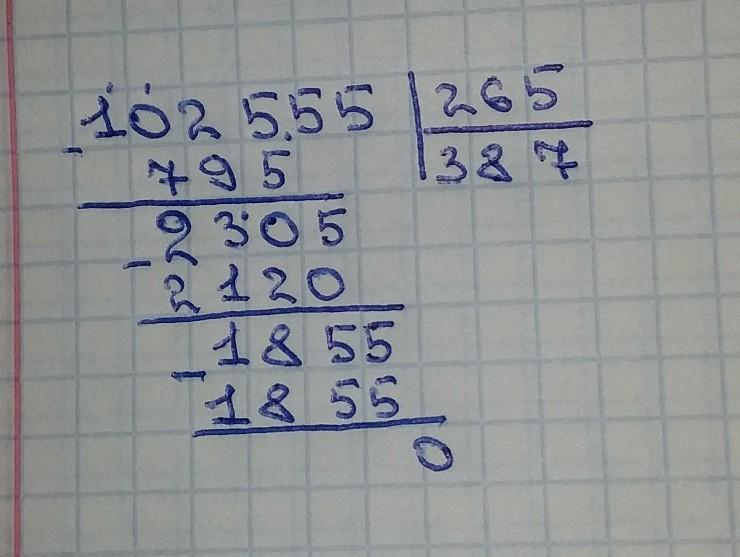 102555 265
- 795 387
2305
- 2120
1855
- 1855
0